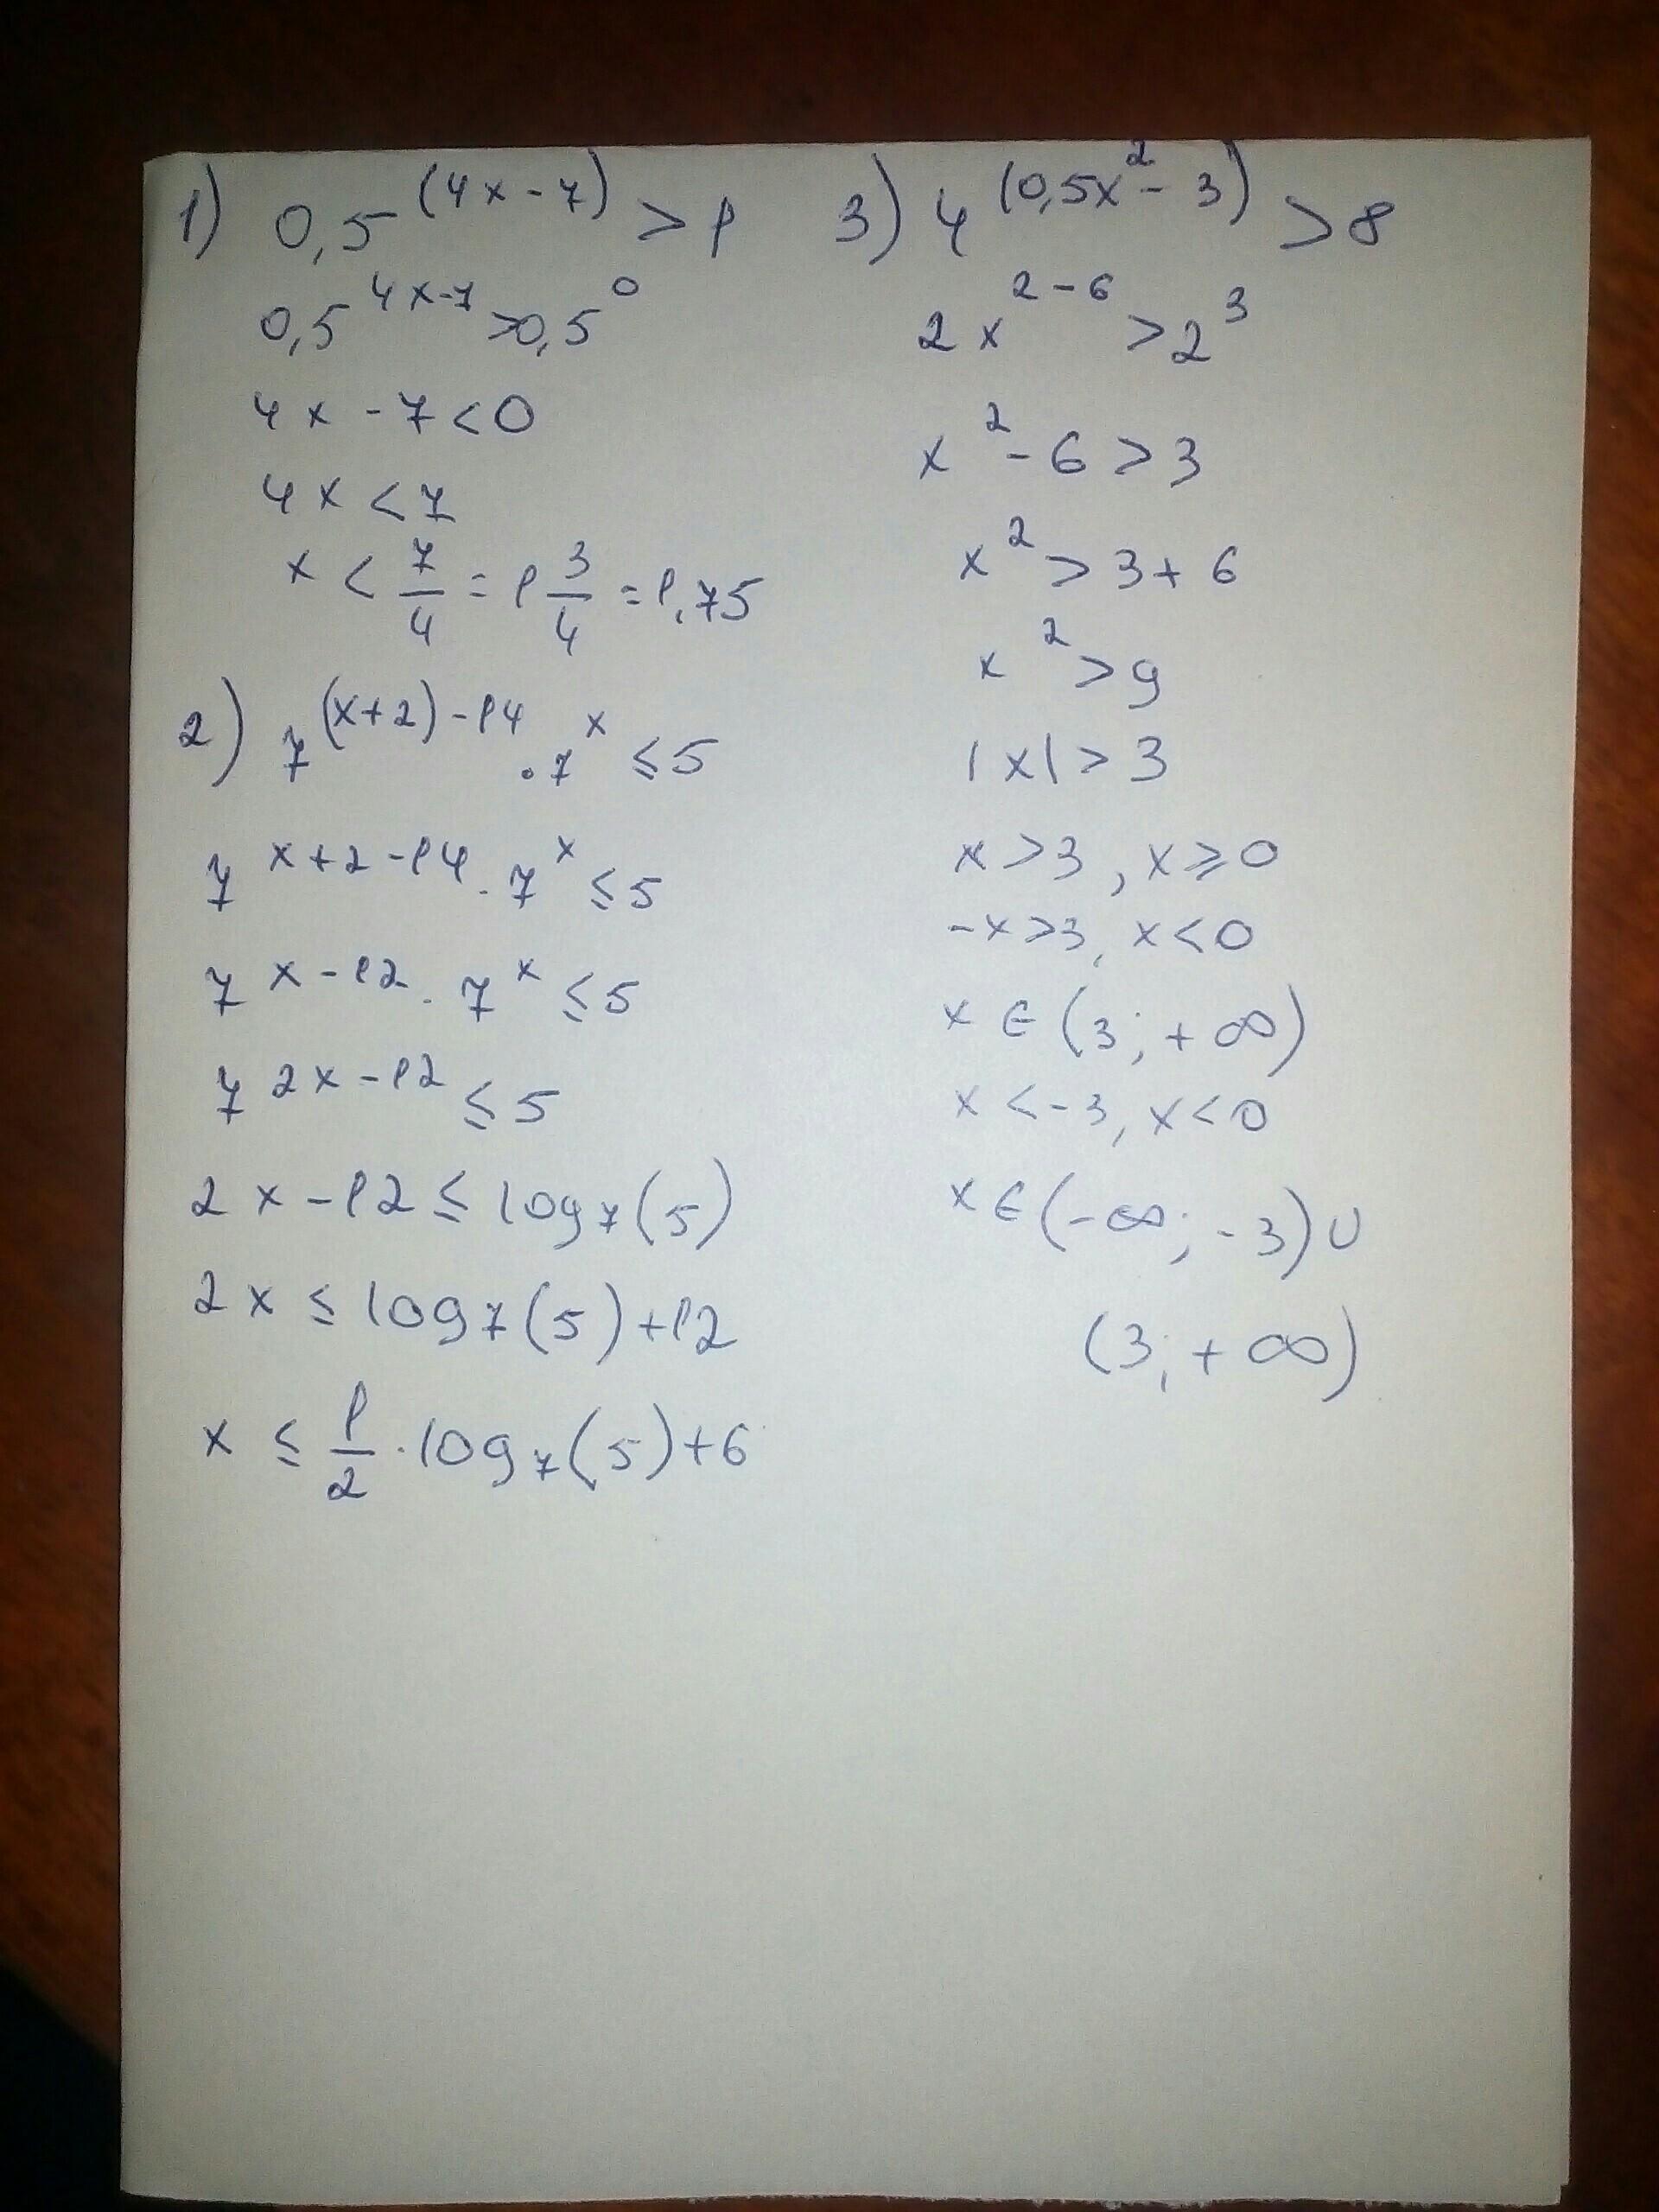 1) 0,5^(4x-7) > 1
0,5^4x-7 > 0,5^0
4x - 7 < 0
4x < 7
x < 7/4 = 1 3/4 = 1,75
2) 7^(x+2)-14 · 7^x ≤ 5
7^x+2-14 · 7^x ≤ 5
7^x-12 · 7^x ≤ 5
7^2x-12 ≤ 5
2x - 12 ≤ log₇(5)
2x ≤ log₇(5) + 12
x ≤ 1/2 · log₇(5) + 6
3) 4^(0,5x²- 3) > 8
2x^2-6 > 2^3
x² - 6 > 3
x² > 3 + 6
x² > 9
|x| > 3
x > 3, x ≥ 0
-x > 3, x < 0
x ∈ (3; + ∞)
x < -3, x < 0
x ∈ (-∞; -3) ∪
(3; + ∞)